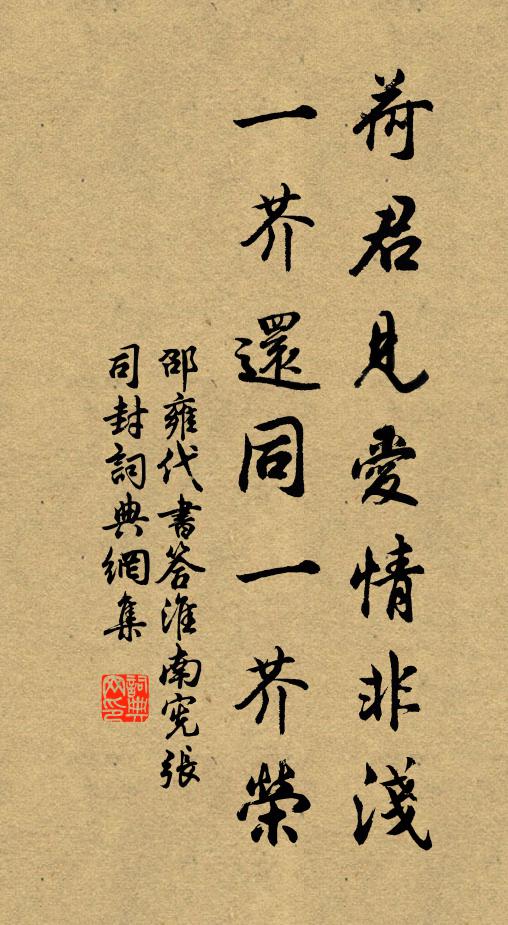 荷君見愛情非淺
一芥還同一芥榮
邵雍代書答淮南宪張
司封詞典網集
詞典
网印